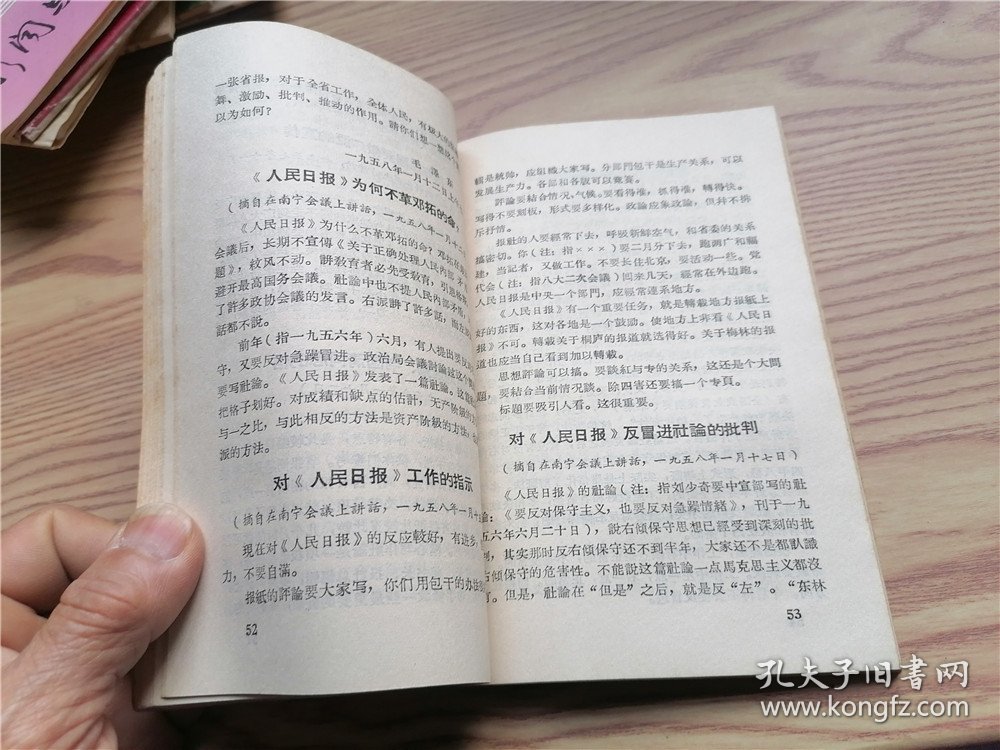 一张省报，对于全省工作，全体人民，有极大的
舞、激励、批判、推动的作用。請你們想一想
以为如何？
毛 澤
一九五八年一月十二日上
《人民日报》为何不革邓拓的命？
（摘自在南宁会議上讲話，一九五八年一月十
《人民日报》为什么不革邓拓的命？邓拓在
会議后，长期不宣傳《关于正确处理人民內部矛
題》，紋风不动。讲教育者必先受教育，引恩格斯
避开最高国务会議。社論中也不提人民內部矛盾，
了許多政协会議的发言。右派讲了許多話，而左
話都不說。
前年（指一九五六年）六月，有人提出要反
守，又要反对急躁冒进。政治局会議討論过这个
要写社論。《人民日报》发表了一篇社論。这
把格子划好。对成績和缺点的估計，无产阶級的
与一之比，与此相反的方法是资产阶級的方法，
派的方法。
对《人民日报》工作的指示
（摘自在南宁会議上讲話，一九五八年一月十
現在对《人民日报》的反应較好，有进步，
力，不要自滿。
报紙的評論要大家写，你们用包干的办法
52
輯是統帅，应组織大家写。分部門包干是生产关系，可以
发展生产力。各部和各版可以竞赛。
評論要结合情况、气候。要看得准，抓得准，轉得快。
写得不要刻板，形式要多样化。政論应象政論，但幷不排
斥抒情。
报社的人要經常下去，呼吸新鮮空气，和省委的关系
搞密切。你（注：指×××）要二月分下去，跑两广和福
建，当記者，又做工作。不要长住北京，要活动一些。党
代会（注：指八大二次会議）回来几天，經常在外边跑。
人民日报是中央一个部門，应經常連系地方。
《人民日报》有一个重要任务，就是轉載地方报紙上
好的东西，这对各地是一个鼓励。使地方上非看《人民日
报》不可。轉載关于桐庐的报道就选得好。关于梅林的报
道也应当自己看到加以轉載。
思想評論可以搞。要談紅与专的关系，这还是个大問
題，要结合当前情况談。除四害还要搞一个专頁。
标題要吸引人看。这很重要。
对《人民日报》反冒进社論的批判
（摘自在南宁会議上讲話，一九五八年一月十七日）
《人民日报》的社論（注：指刘少奇要中宣部写的社
論：《要反对保守主义，也要反对急躁情緒》，刊于一九
五六年六月二十日），說右傾保守思想已經受到深刻的批
判，其实那时反右傾保守还不到半年，大家还不是都认識
右傾保守的危害性。不能說这篇社論一点馬克思主义都沒
有。但是，社論在“但是”之后，就是反“左”。“东林
53
孔夫子旧书网
www.kongfz.com